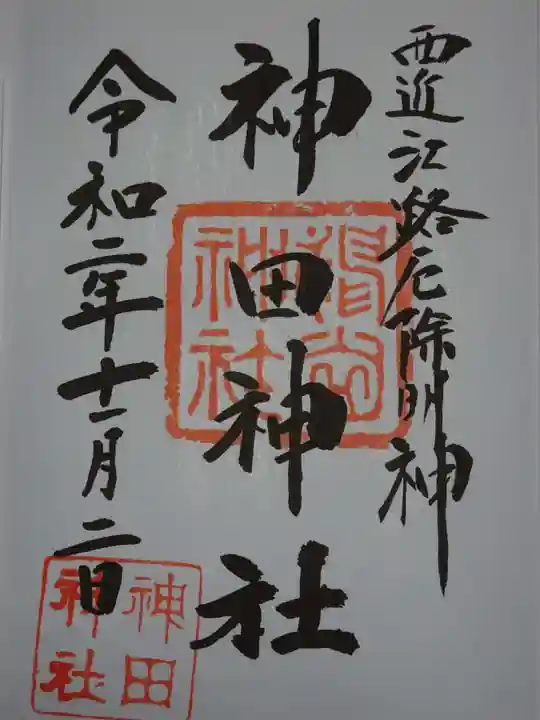 西近江路厄除明神
神田神社
令和二年十一月二日
神田
神社